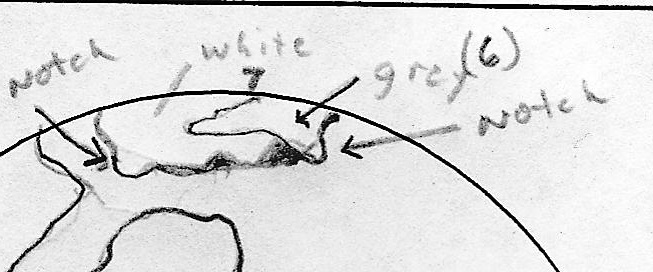 Notch
white
7
grey(6)
Notch